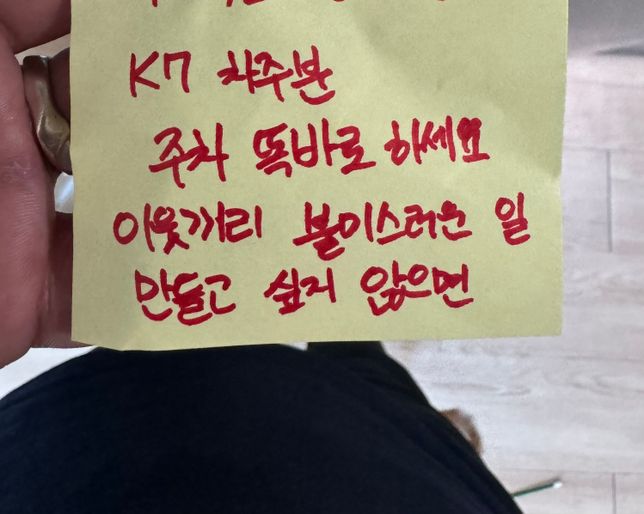 K7 차주분
주차 똑바로 하세요
이웃끼리 불미스러운 일
만들고 싶지 않으면